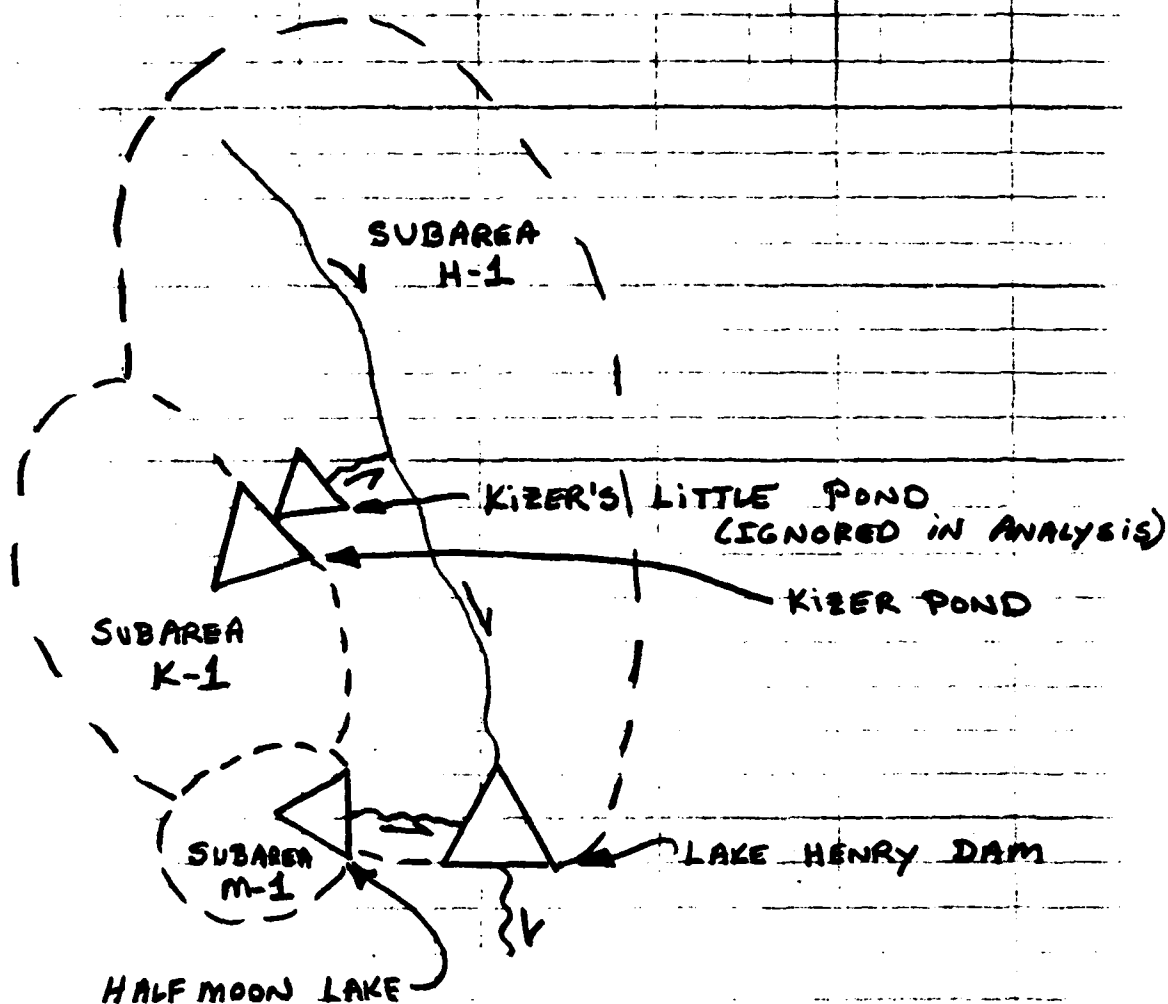 SUBAREA
H-1
KIZER'S LITTLE POND
(IGNORED IN ANALYSIS)
KIZER POND
SUBAREA
K-1
SUBAREA
M-1
LAKE HENRY DAM
HALFMOON LAKE